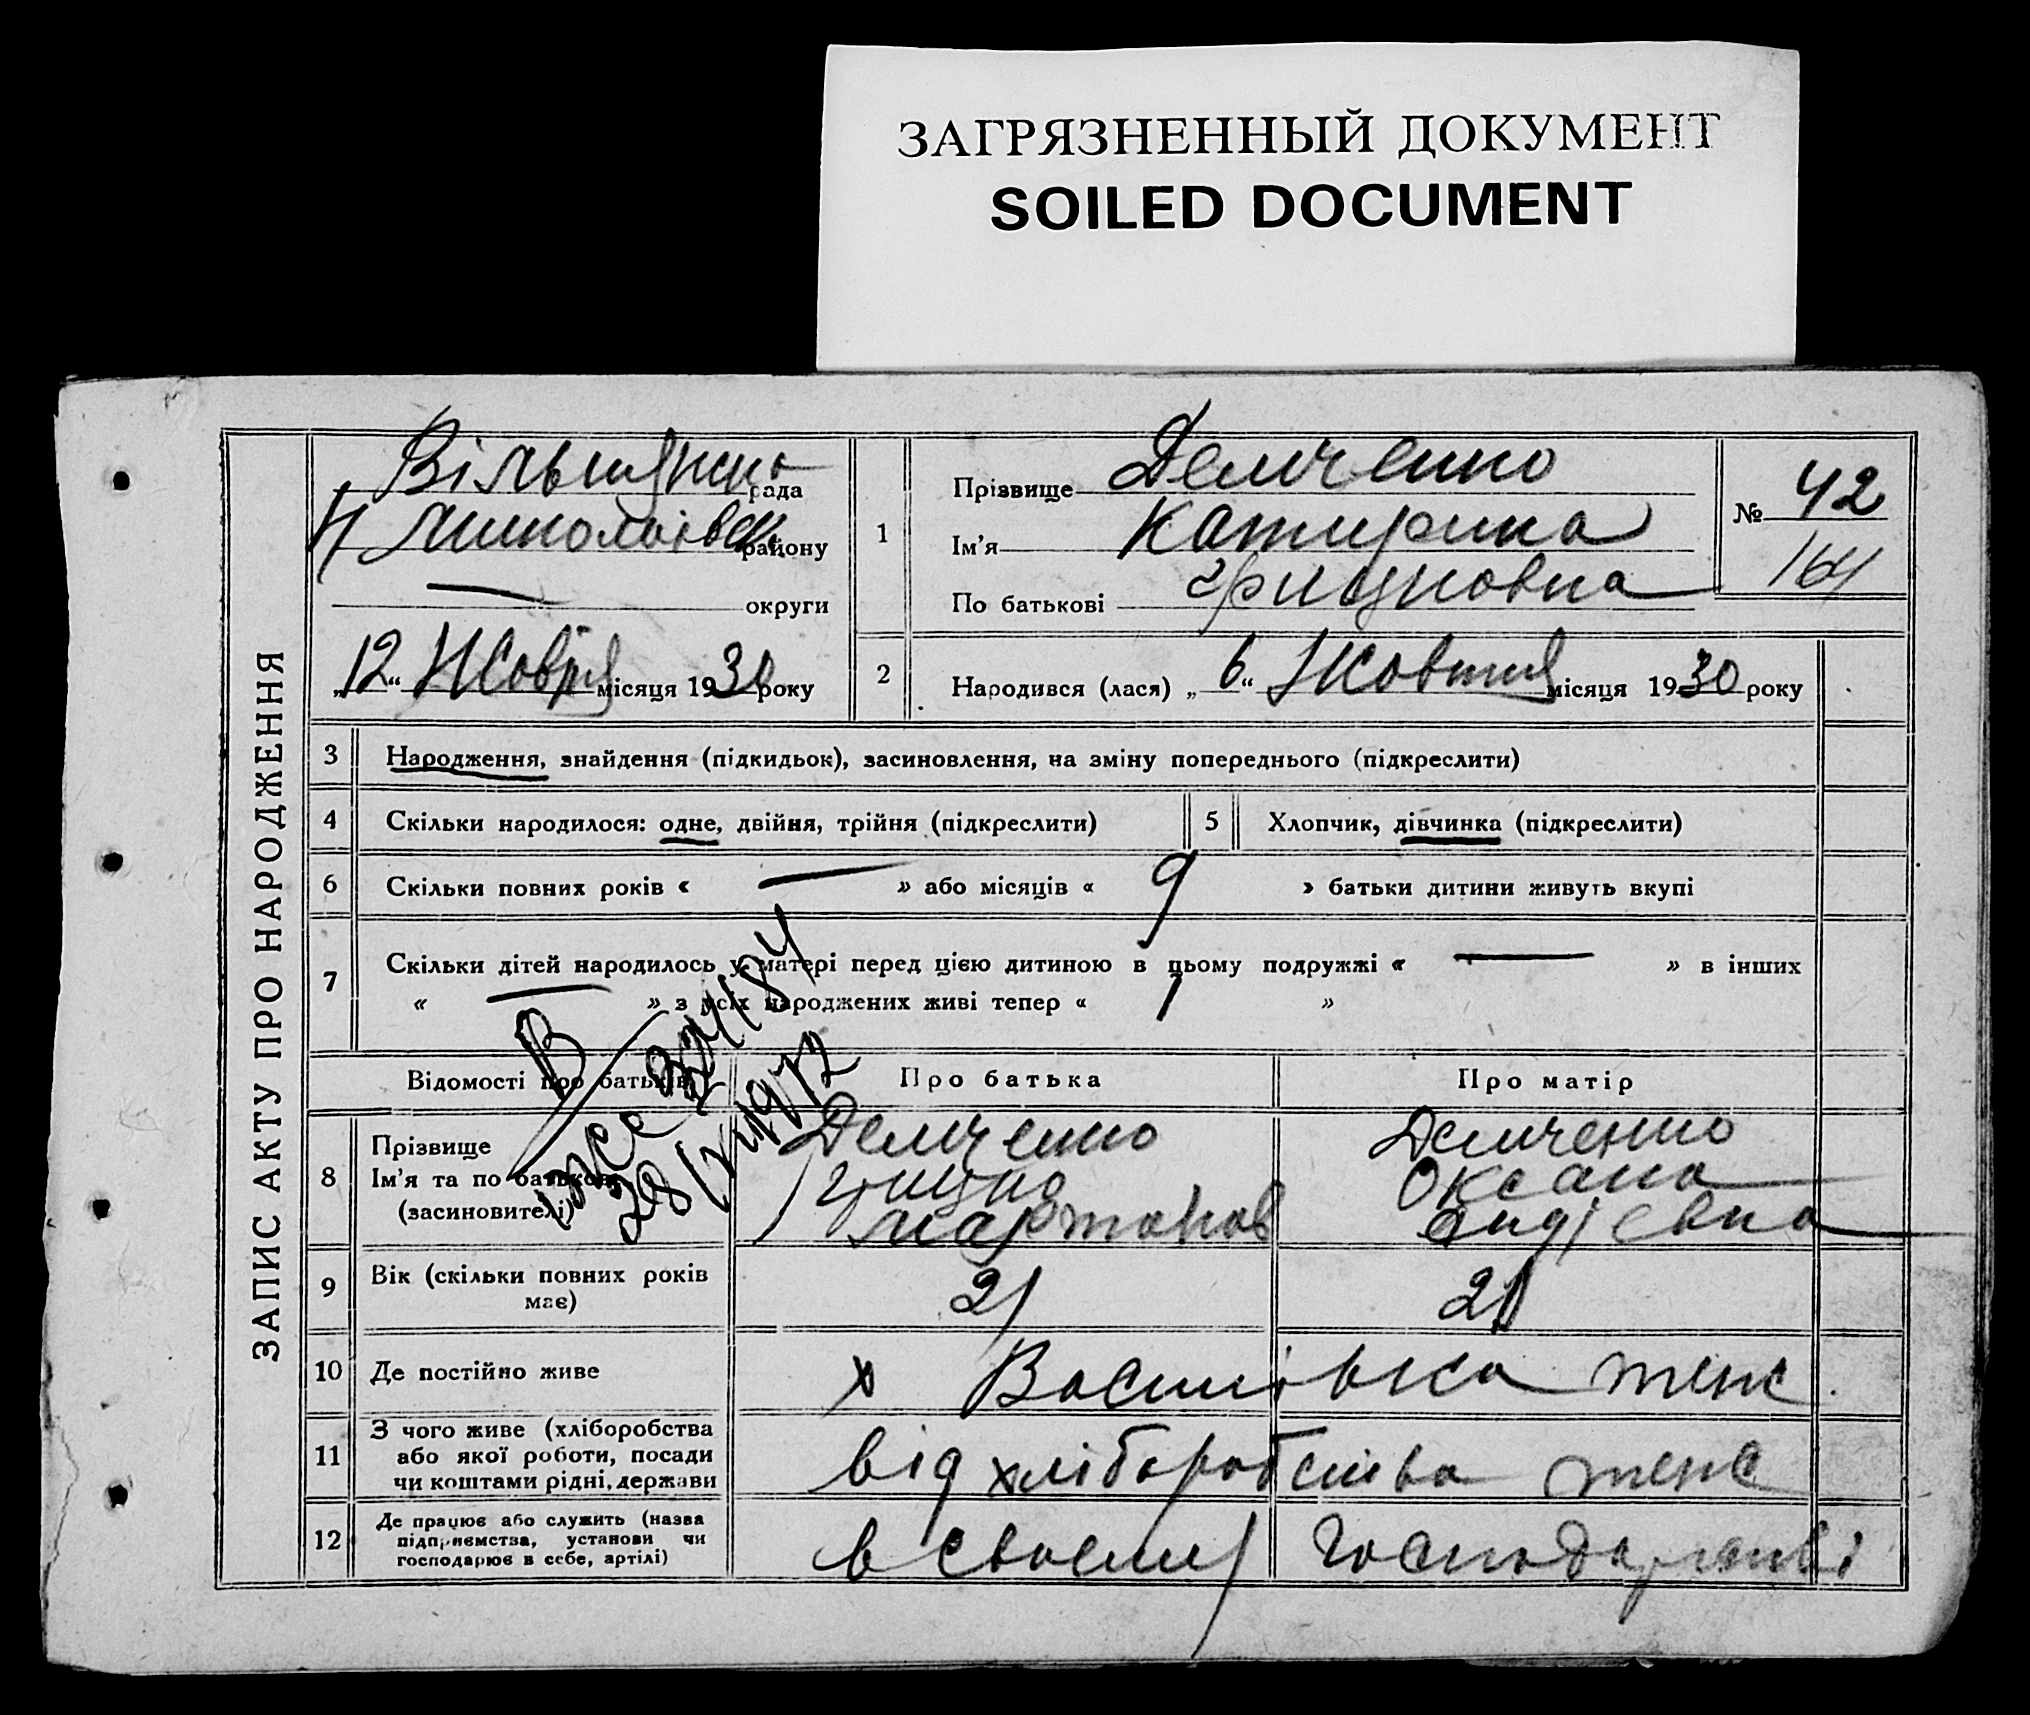 ЗАГРЯЗНЕННЫЙ ДОКУМЕНТ
SOILED DOCUMENT
ЗАПИС АКТУ ПРО НАРОДЖЕННЯ
рада
району
округи
„12“ Жовтня місяця 1930 року
1
Прізвище Демченко
Ім'я Катирина
По батькові Грицковна
№ 42
164
2 Народився (лася) „6“ Жовтня місяця 1930 року
3 Народження, знайдення (підкидьок), засиновлення, на зміну попереднього (підкреслити)
4 Скільки народилося: одне, двійня, трійня (підкреслити)
5 Хлопчик, дівчинка (підкреслити)
6 Скільки повних років « — » або місяців « 9 » батьки дитини живуть вкупі
7 Скільки дітей народилось у матері перед цією дитиною в цьому подружжі « — » в інших
« — » з усіх народжених живі тепер « 1 »
Відомості про батьків
Про батька
Про матір
8 Прізвище
Ім'я та по батькові
(засиновителі)
Демченко
Грицко
Демченко
Оксана
9 Вік (скільки повних років
має)
21
21
10 Де постійно живе
х Василівка теж
11 З чого живе (хліборобства
або якої роботи, посади
чи коштами рідні, держави
від хліборобства теж
12 Де працює або служить (назва
підприємства, установи чи
господарює в себе, артілі)
в своему господарстві